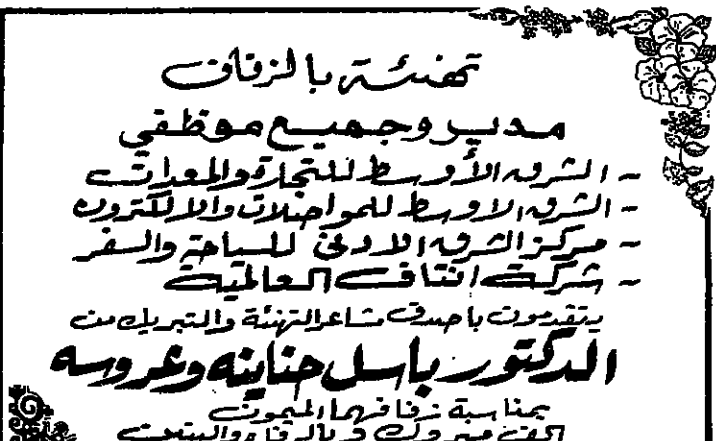 تهنئة بالزفاف
مدير وجميع موظفي
- الشرق الأوسط للتجارة والمعدات
- الشرق الاوسط للمواصلات والالكترون
- مركز الشرق الادنى للسياحة والسفر
- شركة انتاف العالمية
يتقدمون باصدق مشاعر التهنئة والتبريك من
الدكتور باسل حناينه وعروسه
بمناسبة زفافهما الميمون
الف مبروك وبالرفاه والبنين